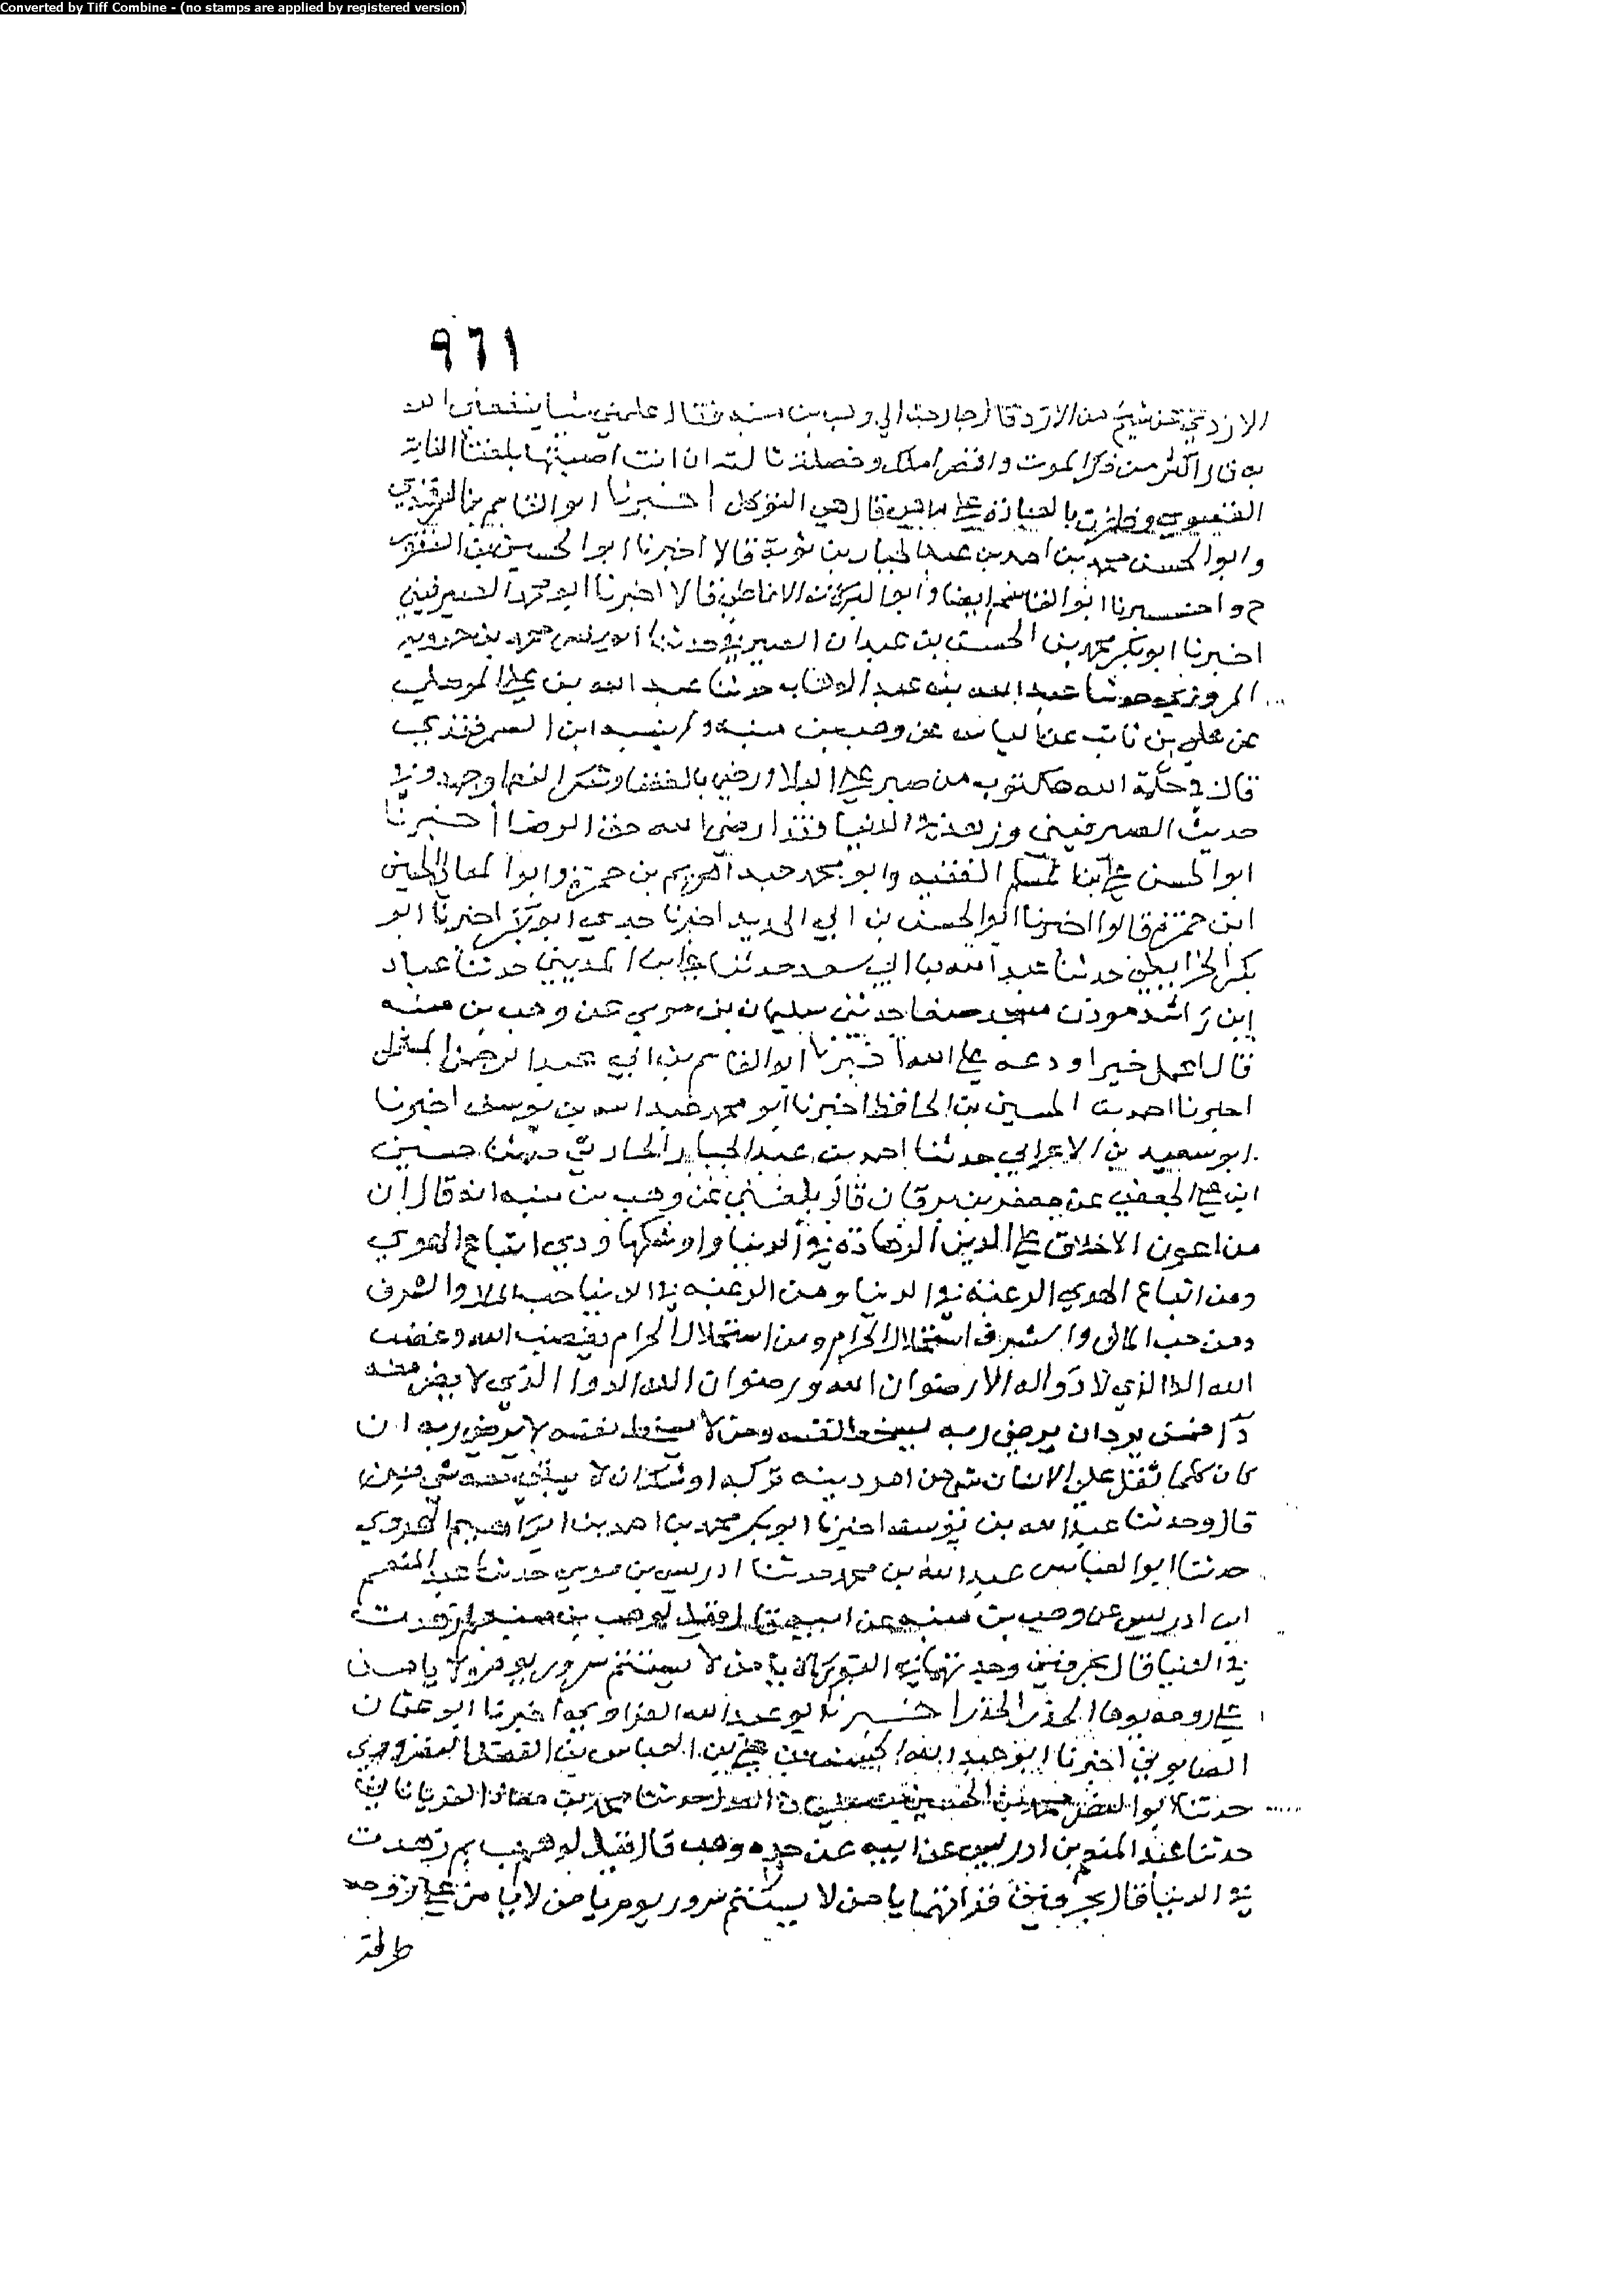 Converted by Tiff Combine - (no stamps are applied by registered version)
٩٦١
الازدي عن شيخ من الازد قال جا رجل الي وهب بن منبه فقال علمني شيا ينفعني الله
به قال اكثر من ذكر الموت واقصر املك وخصلة ثالثة ان انت اصبتها بلغت الغاية
القصوي وظفرت بالعبادة قال ما هي قال هي التوكل اخبرنا ابو القاسم بن السمرقندي
وابو الحسن محمد بن احمد بن عبد الجبار بن توبة قالا اخبرنا ابو الحسين بن النقور
ح واخبرنا ابو القاسم ايضا وابو البركات الانماطي قالا اخبرنا ابو محمد الصيرفيني
اخبرنا ابو بكر محمد بن الحسن بن عبدان الصيرفي حدثنا محمد بن حمدويه
المروزي حدثنا عبد الله بن عبد الوهاب حدثنا عبد الله بن علي الموصلي
عن علي بن ثابت عن الياس عن وهب بن منبه ولم ينسبه ابن السمرقندي
قال في حكمة الله مكتوب من صبر علي البلا ورضي بالقضا وشكر النعما وفي
حديث الصيرفيني وزهد في الدنيا فقد ارضي الله حق الرضا اخبرنا
ابو الحسن علي بن مسلم الفقيه وابو محمد عبد الكريم بن حمزة وابو المعالي الحسين
ابن حمزة قالوا اخبرنا ابو الحسن بن ابي الحديد اخبرنا جدي ابو بكر اخبرنا ابو
بكر الخرايطي حدثنا عبد الله بن ابي سعد حدثنا المديني حدثنا عباد
ابن راشد موذن مسجد صنعا حدثني سليمان بن موسي عن وهب بن منبه
قال اعمل خيرا ودعه علي الله اخبرنا ابو القاسم بن ابي عبد الرحمن المستملي
اخبرنا احمد بن الحسين بن الحافظ اخبرنا ابو محمد عبد الله بن يوسف اخبرنا
ابو سعيد بن الاعرابي حدثنا احمد بن عبد الجبار الحارثي حدثنا حسين
ابن علي الجعفي عن جعفر بن برقان قال بلغني عن وهب بن منبه انه قال ان
من اعون الاخلاق علي الدين الزهادة في الدنيا واوشكها ودي اتباع الهوي
ومن اتباع الهوي الرغبة في الدنيا ومن الرغبة في الدنيا حب المال والشرف
ومن حب المال والشرف استحلال الحرام ومن استحلال الحرام يغضب الله وغضب
الله الدا الذي لا دوا له الا رضوان الله ورضوان الله الدوا الذي لا يضر معه
دا فمن يرد ان يرضي ربه يسخط نفسه ومن لا يسخط نفسه لا يرضي ربه ان
كان كلما ثقل علي الانسان شي من امر دينه تركه اوشك ان لا يبقي معه شي منه
قال وحدثنا عبد الله بن يوسف اخبرنا ابو بكر محمد بن احمد بن ابراهيم الهروي
حدثنا ابو العباس عبد الله بن محمد حدثنا ادريس بن موسي حدثنا عبد المنعم
ابن ادريس عن وهب بن منبه عن ابيه قال قيل لوهب بن منبه بم زهدت
في الدنيا قال بحرفين وجدتهما في التوراة يا من لا يستتم سرور يوم ولا يامن
علي روحه يوما الحذر الحذر اخبرنا ابو عبد الله الفراوي اخبرنا ابو عثمان
الصابوني اخبرنا ابو عبد الله بن العباس بن
حدثنا ابو الفضل محمد بن الحسين بن حدثنا محمد بن معاذ
حدثنا عبد المنعم بن ادريس عن ابيه عن جده وهب قال قيل لوهب بم زهدت
في الدنيا قال بحرفين قراتهما يا من لا يستتم سرور يوم ويا من لا يامن علي روحه
طرفة